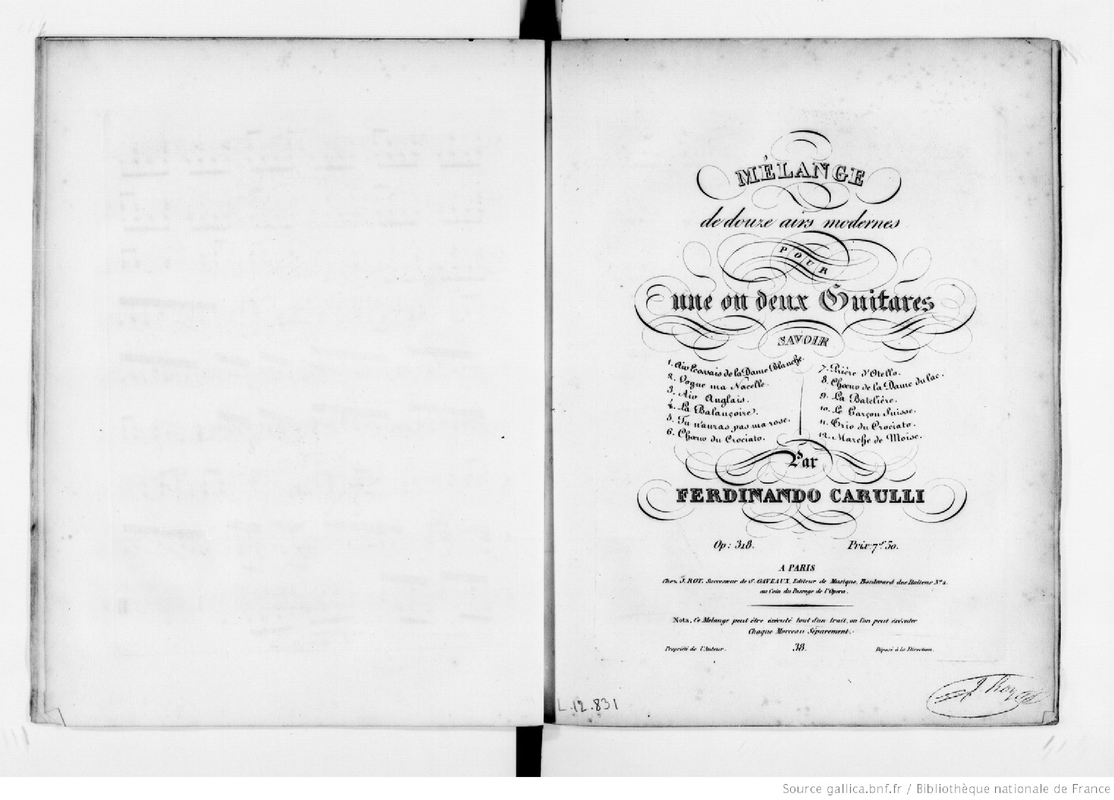 MÉLANGE
de douze airs modernes
POUR
une ou deux Guitares
SAVOIR
1. Air Ecossais de la Dame Blanche.
2. Vogue ma Nacelle.
3. Air Anglais.
4. La Balançoire.
5. Tu n'auras pas ma rose.
6. Chœur du Crociato.
7. Prière d'Otello.
8. Chœur de la Dame du lac.
9. La Batelière.
10. Le Garçon Suisse.
11. Trio du Crociato.
12. Marche de Moïse.
Par
FERDINANDO CARULLI
Op: 318. Prix 7f. 50.
A PARIS
Chez J. ROY, Successeur de St. GAVEAUX, Editeur de Musique, Boulevard des Italiens No.
au Coin du Passage de l'Opera.
Nota. Ce Mélange peut être éxécuté tout d'un trait, ou l'on peut éxécuter
Chaque Morceau Séparement.
Propriété de l'Auteur. 38. Déposé à la Direction.
L.12.831
Source gallica.bnf.fr / Bibliothèque nationale de France